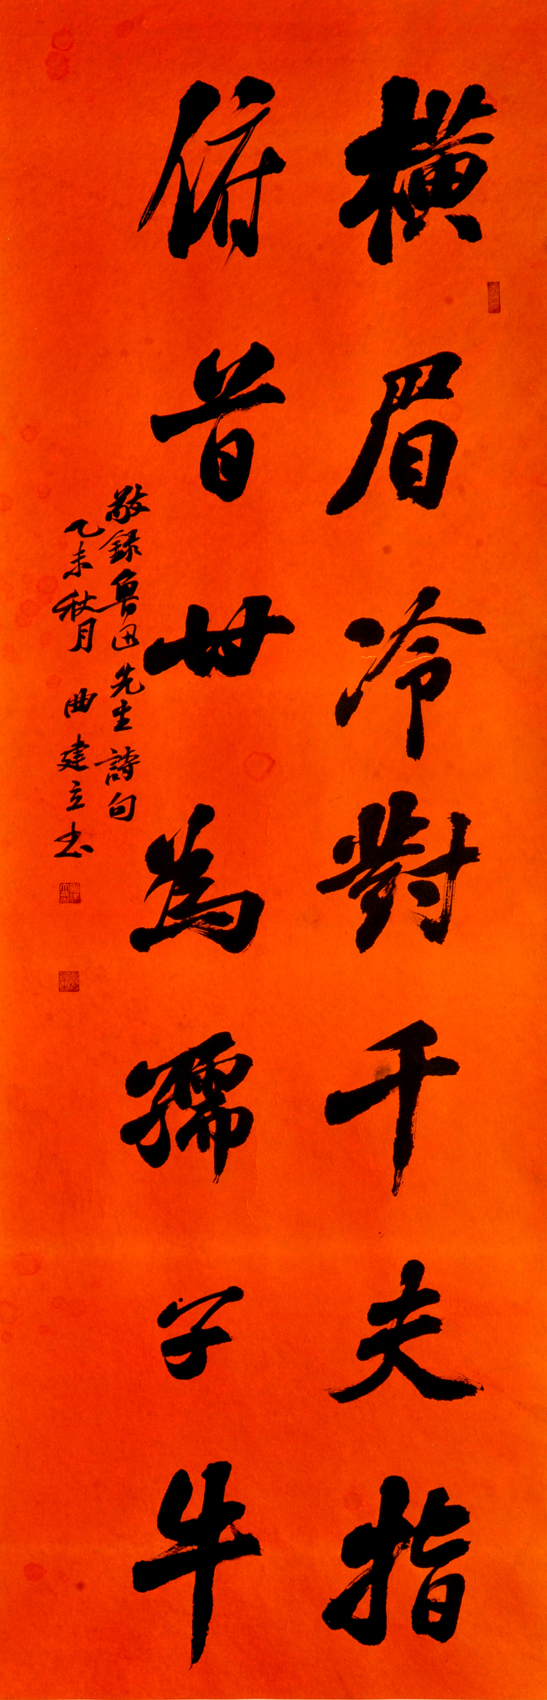 橫眉冷對千夫指
俯首甘為孺子牛
敬録魯迅先生詩句
乙未秋月 曲建立书